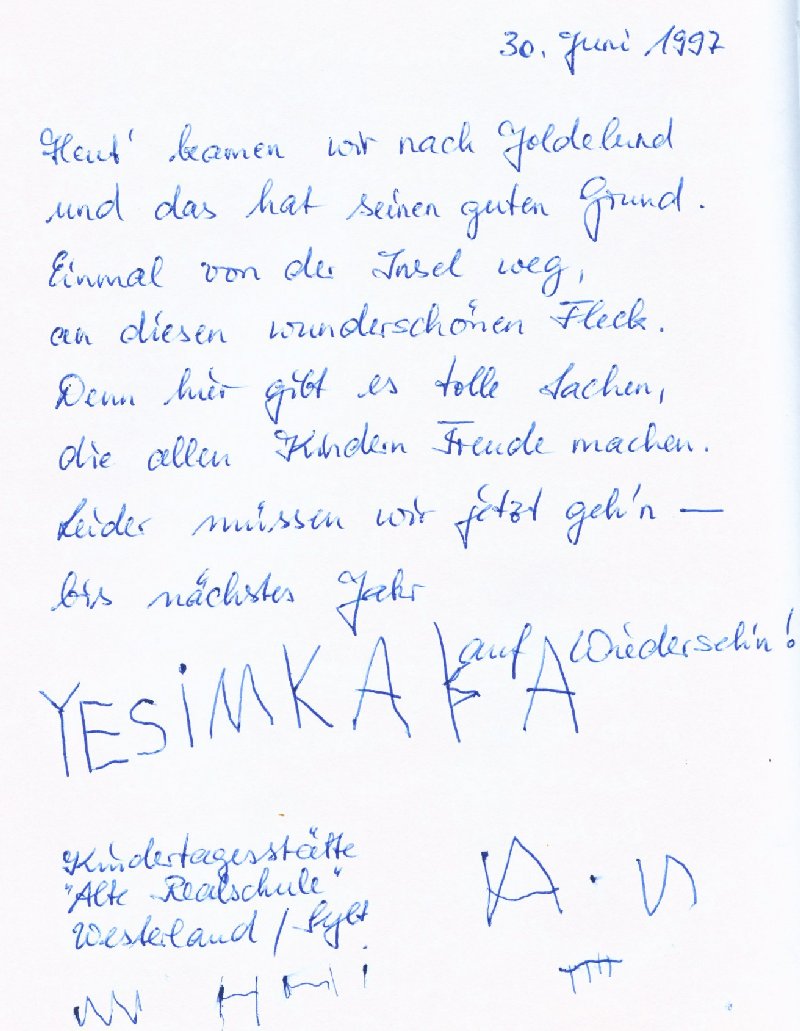 30. Juni 1997
Heut' kamen wir nach Joldelund
und das hat seinen guten Grund.
Einmal von der Insel weg,
an diesen wunderschönen Fleck.
Denn hier gibt es tolle Sachen,
die allen Kindern Freude machen.
Leider müssen wir jetzt geh'n —
bis nächstes Jahr
auf Wiederseh'n!
YESiM KAYA
Kindertagesstätte
"Alte Realschule"
Westerland / Sylt